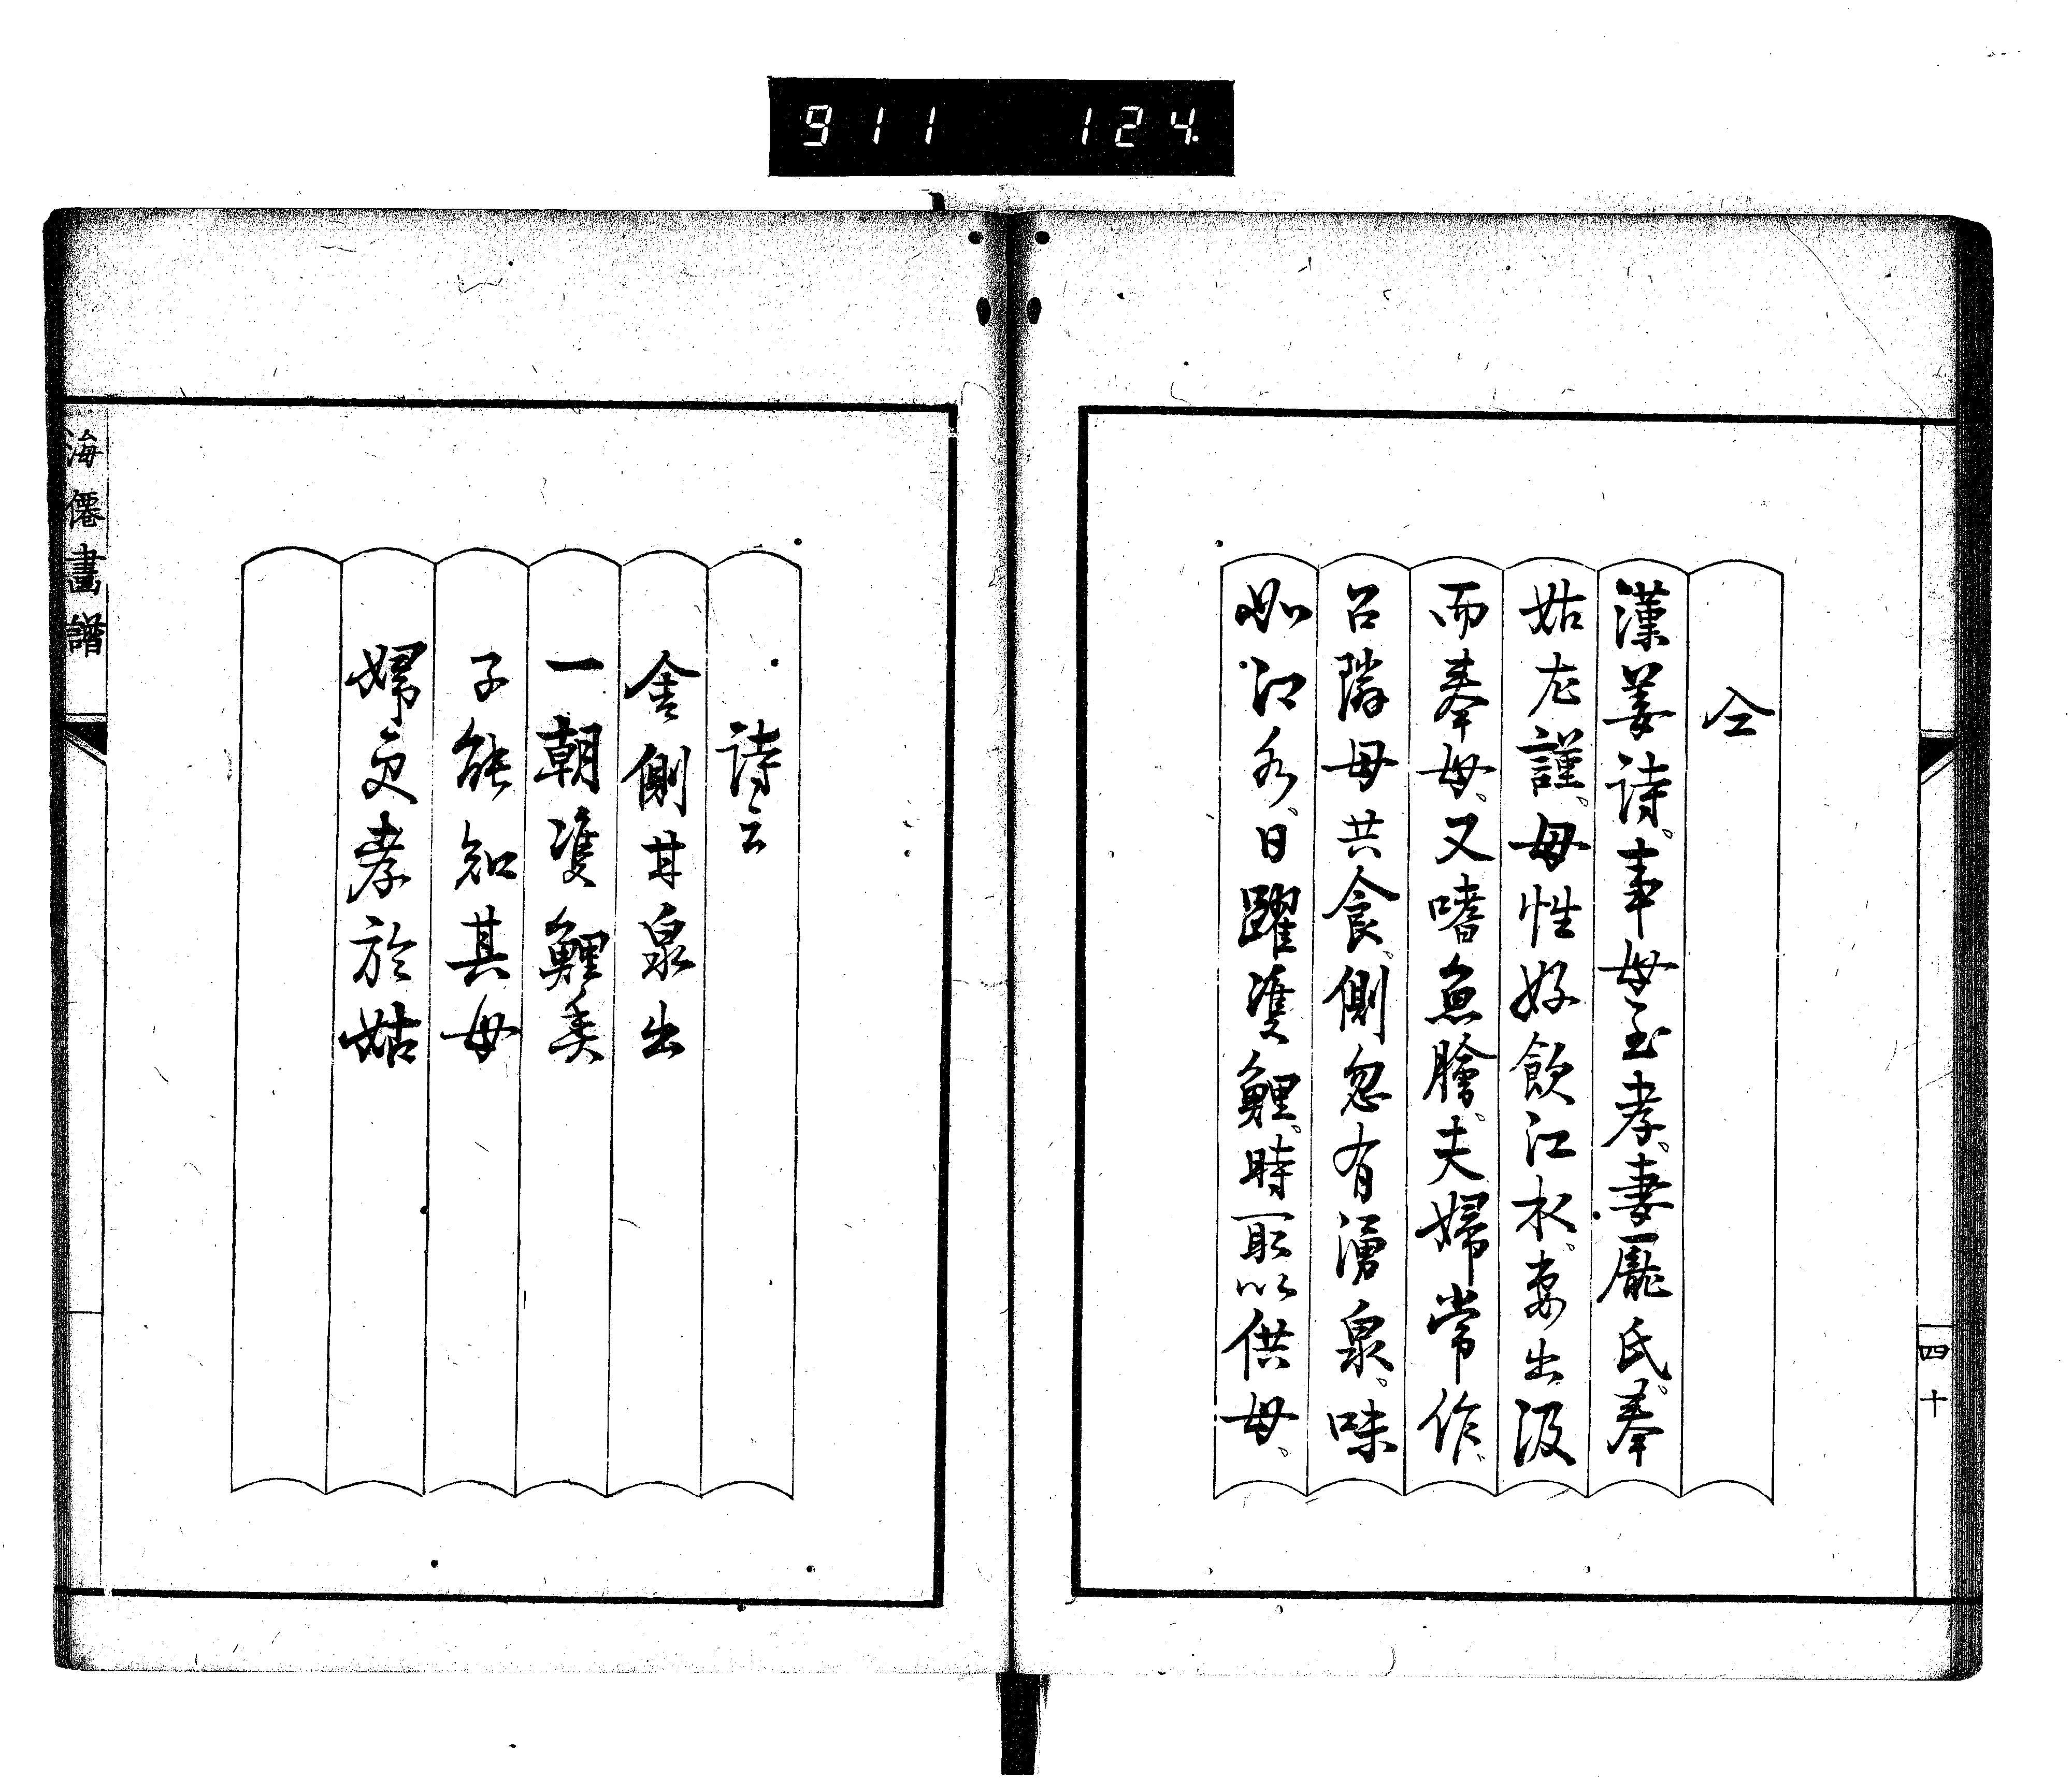 911 124
仝
漢姜詩。事母至孝。妻龐氏。奉
姑尤謹。母性好飲江水。妻出汲
而奉母。又嗜魚膾。夫婦常作。
召隣母共食。側忽有湧泉。味
如江水。日躍雙鯉。時取以供母。
四十
詩云
舍側甘泉出
一朝雙鯉魚
子能知其母
婦更孝於姑
海僊畫譜